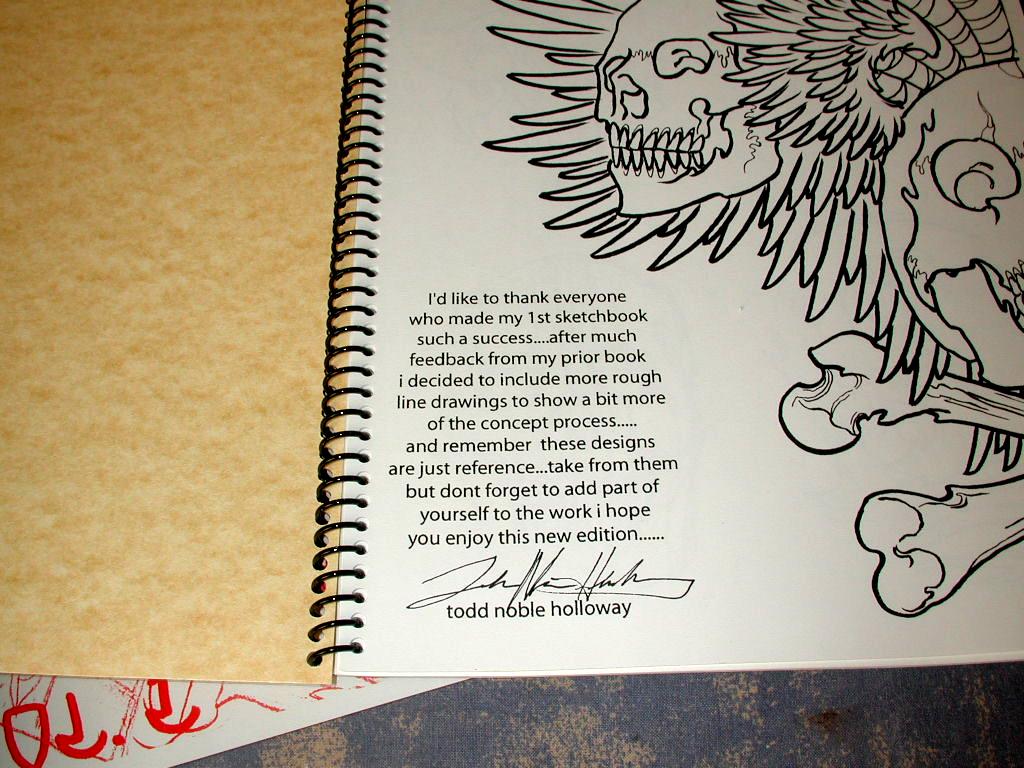 I'd like to thank everyone
who made my 1st sketchbook
such a success....after much
feedback from my prior book
i decided to include more rough
line drawings to show a bit more
of the concept process.....
and remember these designs
are just reference...take from them
but dont forget to add part of
yourself to the work i hope
you enjoy this new edition......
todd noble holloway